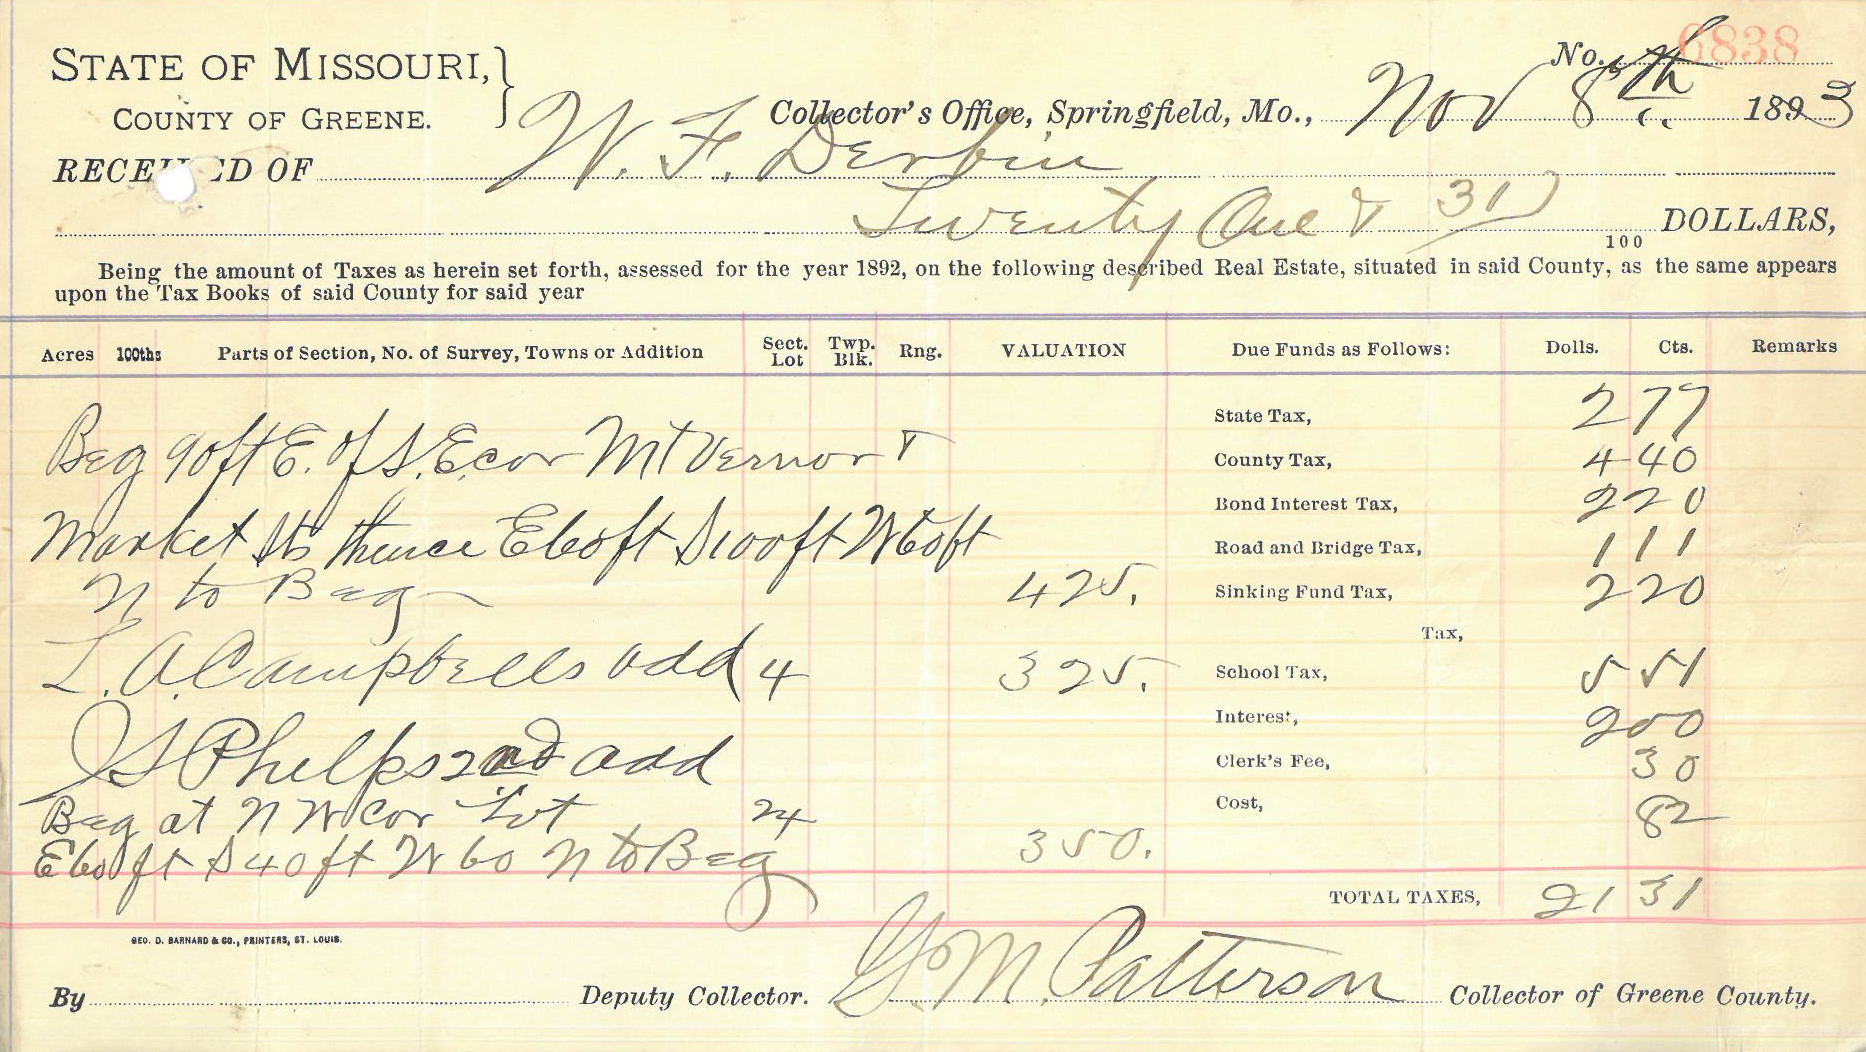 No. 6838
STATE OF MISSOURI,
COUNTY OF GREENE.
Collector's Office, Springfield, Mo., Nov 8th 1893
RECEIVED OF W. F. Derbin
Twenty One & 31/100 DOLLARS,
Being the amount of Taxes as herein set forth, assessed for the year 1892, on the following described Real Estate, situated in said County, as the same appears
upon the Tax Books of said County for said year
Acres 100ths Parts of Section, No. of Survey, Towns or Addition Sect. Lot Twp. Blk. Rng. VALUATION Due Funds as Follows: Dolls. Cts. Remarks
State Tax, 2 77
Beg 90ft E. of S. E cor Mt Vernon &
County Tax, 4 40
Bond Interest Tax, 2 20
Market Sts thence E 60ft S 100ft W 60ft
Road and Bridge Tax, 1 11
N to Beg 425.
Sinking Fund Tax, 2 20
Tax,
L. A. Campbells add 4 325.
School Tax, 5 51
Interest, 2 00
J S Phelps 2nd add
Clerk's Fee, 30
Beg at N W Cor Lot 24
Cost, 82
E 60 ft S 40 ft W 60 N to Beg 350.
TOTAL TAXES, 21 31
GEO. D. BARNARD & CO., PRINTERS, ST. LOUIS.
By Deputy Collector. G. M. Patterson Collector of Greene County.